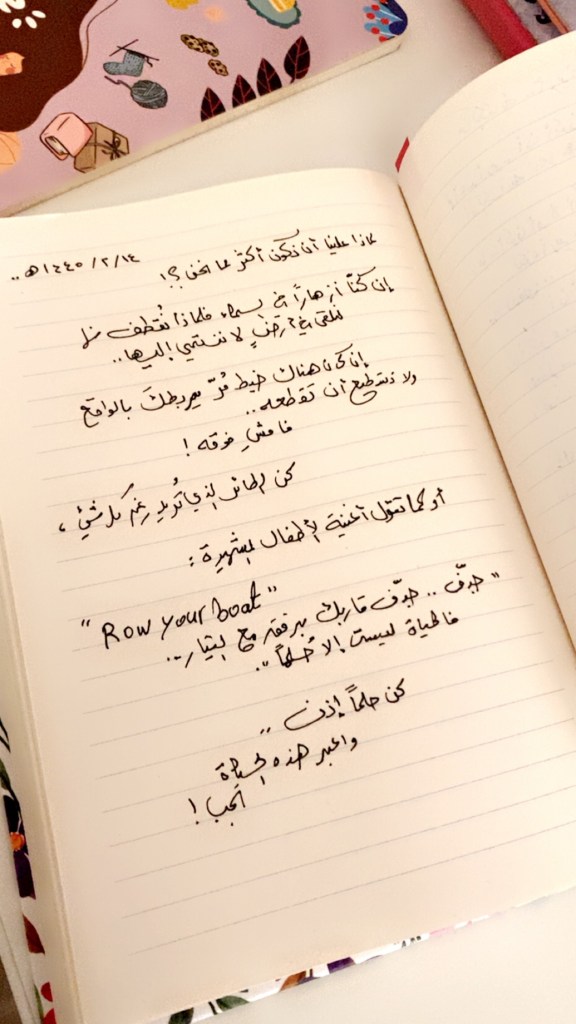 ١٤٤٥/٢/١٤ هـ..
لماذا علينا أن نكون أكثر مما نحن؟!
إن كنّا أزهاراً في السماء، فلماذا نُقطف
نلقى في أرضٍ لا ننتمي إليها..
إن كان هناك خيط مُرّ يربطك بالواقع
ولا تستطيع أن تقطعه..
فامشِ فوقه!
كن الطائر الذي تُريد رغم كل شيء،
أو كما تقول أغنية الأطفال الشهيرة:
"Row your boat"
"جدّف.. جدّف قاربك برفق مع التيار..
فالحياة ليست إلا حُلماً".
كن حلماً إذن..
واعبر هذه الحياة